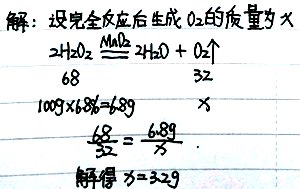 解：设完全反应后生成O₂的质量为x
MnO₂
2H₂O₂ == 2H₂O + O₂↑
68 32
100g×6.8%=6.8g x
68/32 = 6.8g/x .
解得 x=3.2g